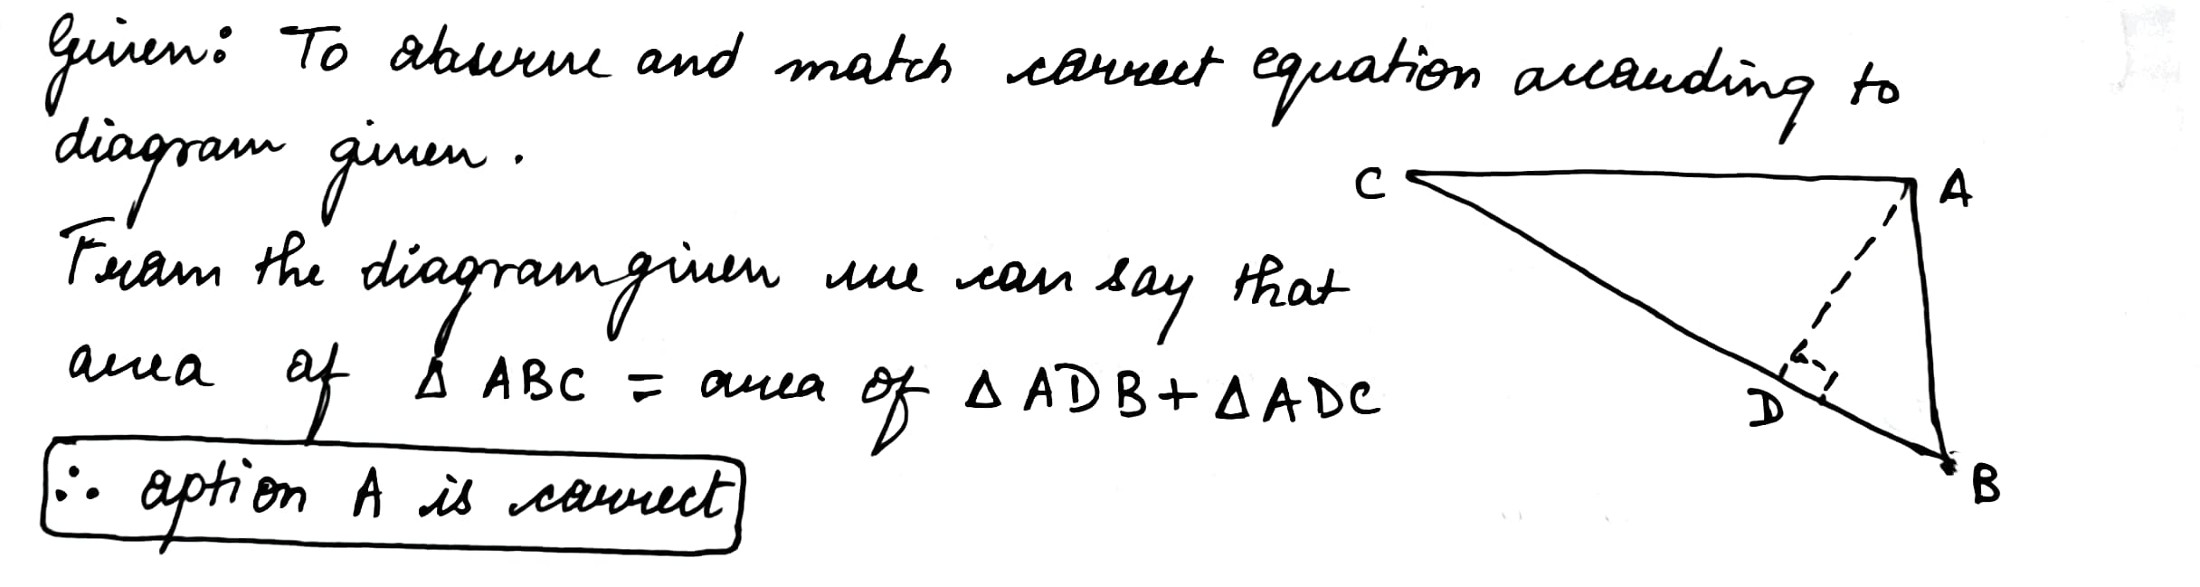 Given: To observe and match correct equation according to
diagram given.
C
A
From the diagram given we can say that
area of Δ ABC = area of Δ ADB + Δ ADC
D
B
∴ option A is correct